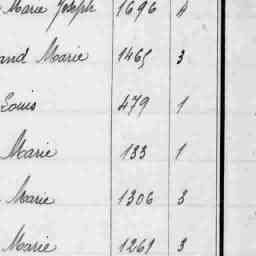 Marie Joseph 1696 4
and Marie 1465 3
Louis 479 1
Marie 133 1
Marie 1306 3
Marie 1261 3